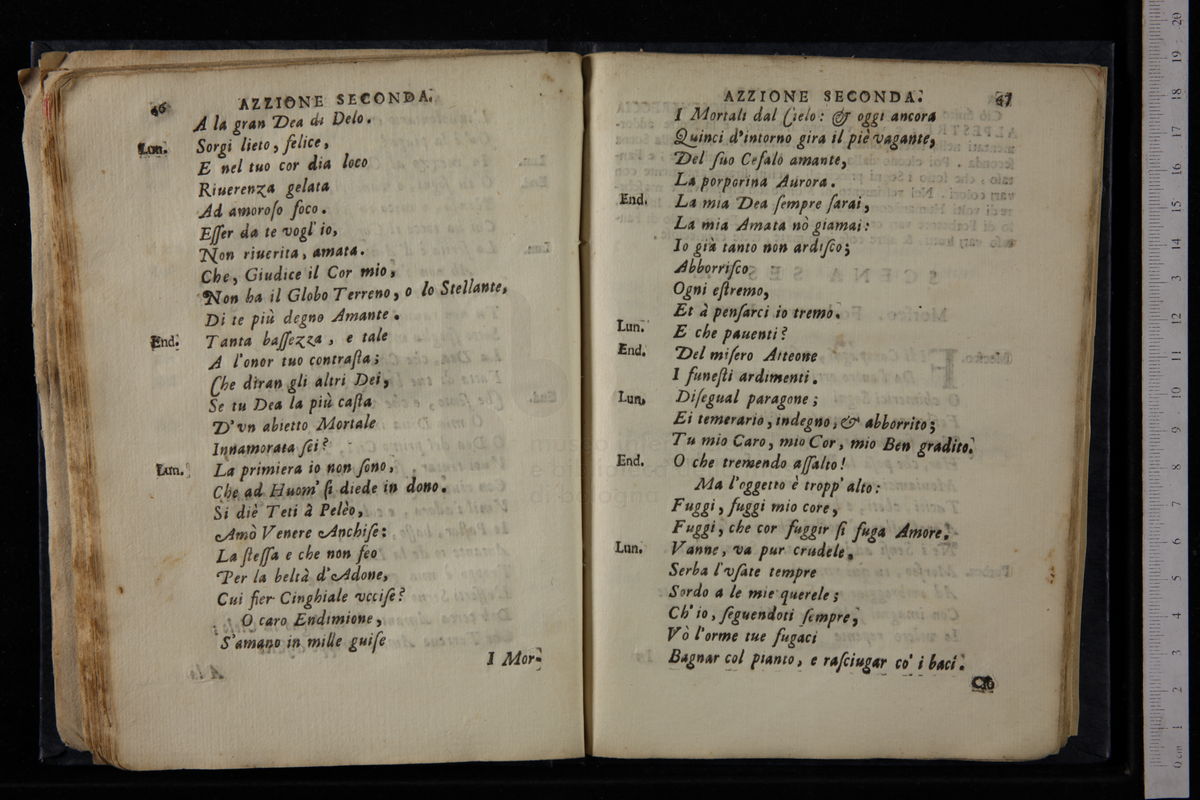 46 AZZIONE SECONDA.
A la gran Dea di Delo.
Lun. Sorgi lieto, felice,
E nel tuo cor dia loco
Riuerenza gelata
Ad amoroſo foco.
Eſſer da te vogl' io,
Non riuerita, amata.
Che, Giudice il Cor mio,
Non ha il Globo Terreno, o lo Stellante,
Di te più degno Amante.
End. Tanta baſſezza, e tale
A l'onor tuo contraſta;
Che diran gli altri Dei,
Se tu Dea la più caſta
D'vn abietto Mortale
Innamorata ſei?
Lun. La primiera io non ſono,
Che ad Huom' ſi diede in dono.
Si diè Teti à Pelèo,
Amò Venere Anchiſe:
La ſteſſa e che non feo
Per la beltà d'Adone,
Cui fier Cinghiale vcciſe?
O caro Endimione,
S'amano in mille guiſe
I Mor-
AZZIONE SECONDA. 47
I Mortali dal Cielo: & oggi ancora
Quinci d'intorno gira il piè vagante,
Del ſuo Cefalo amante,
La porporina Aurora.
End. La mia Dea ſempre ſarai,
La mia Amata nò giamai:
Io già tanto non ardiſco;
Abborriſco
Ogni eſtremo,
Et à penſarci io tremo.
Lun. E che pauenti?
End. Del miſero Atteone
I funeſti ardimenti.
Lun. Diſegual paragone;
Ei temerario, indegno, & abborrito;
Tu mio Caro, mio Cor, mio Ben gradito.
End. O che tremendo aſſalto!
Ma l'oggetto è tropp' alto:
Fuggi, fuggi mio core,
Fuggi, che cor fuggir ſi fuga Amore.
Lun. Vanne, va pur crudele,
Serba l'vſate tempre
Sordo a le mie querele;
Ch' io, ſeguendoti ſempre,
Vò l'orme tue fugaci
Bagnar col pianto, e raſciugar co' i baci.